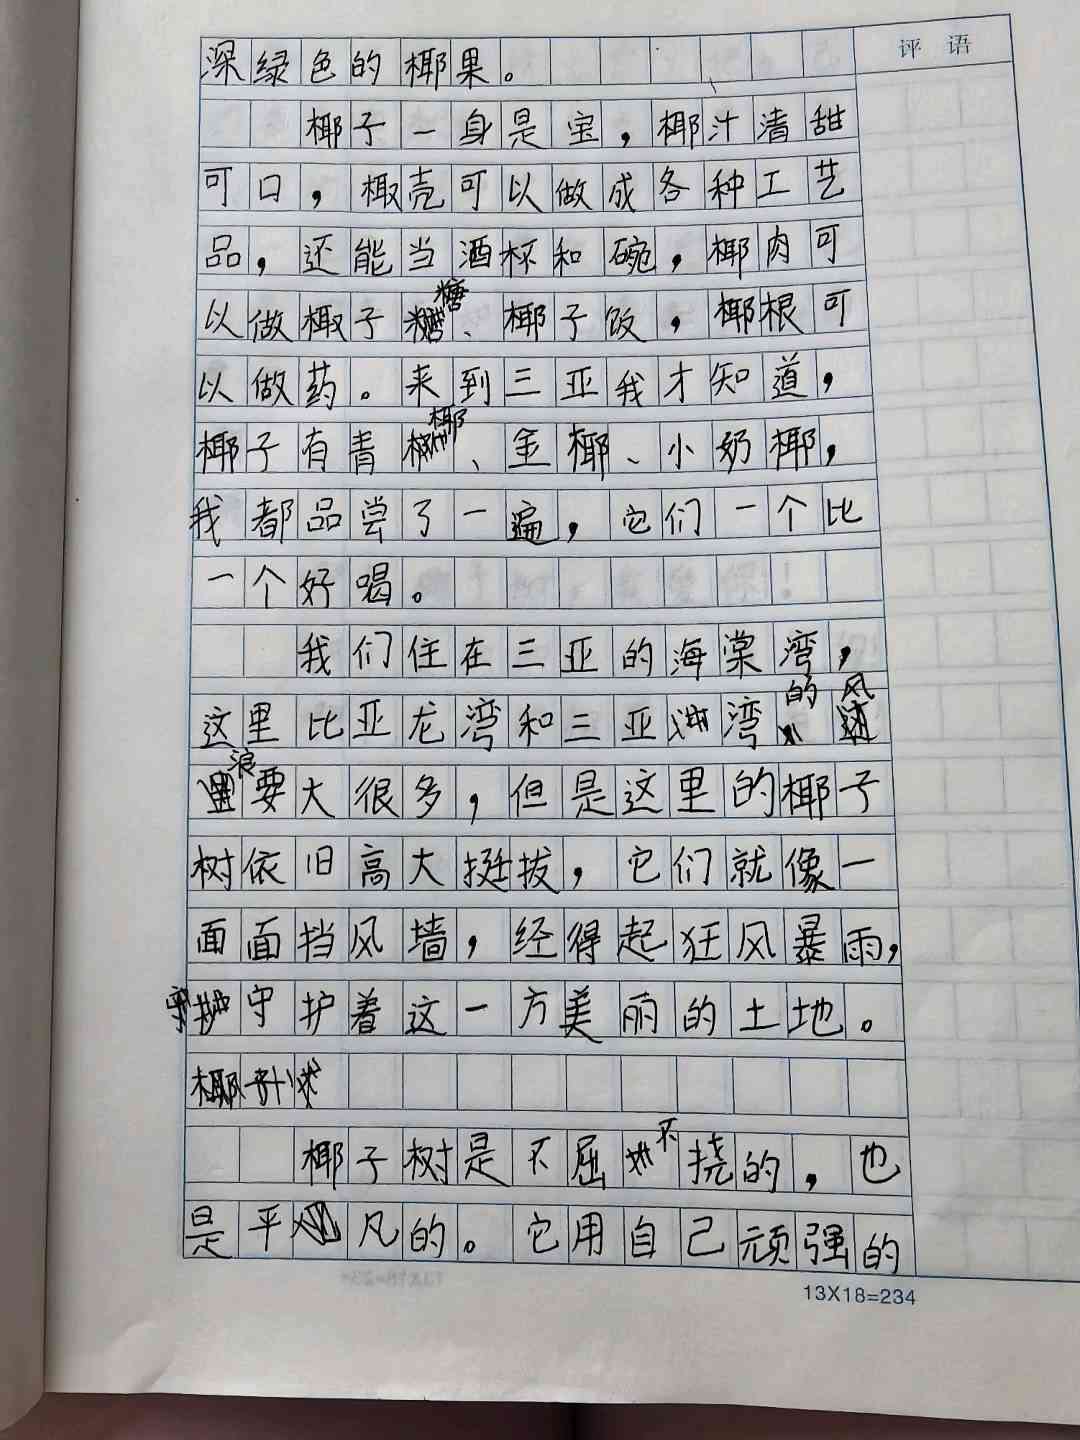 评语
深绿色的椰果。
椰子一身是宝，椰汁清甜
可口，椰壳可以做成各种工艺
品，还能当酒杯和碗，椰肉可
以做椰子糖、椰子饭，椰根可
以做药。来到三亚我才知道，
椰子有青椰、金椰、小奶椰，
我都品尝了一遍，它们一个比
一个好喝。
我们住在三亚的海棠湾，
这里比亚龙湾和三亚湾的风
浪要大很多，但是这里的椰子
树依旧高大挺拔，它们就像一
面面挡风墙，经得起狂风暴雨，
守护着这一方美丽的土地。
椰子树是不屈不挠的，也
是平凡的。它用自己顽强的
13X18=234